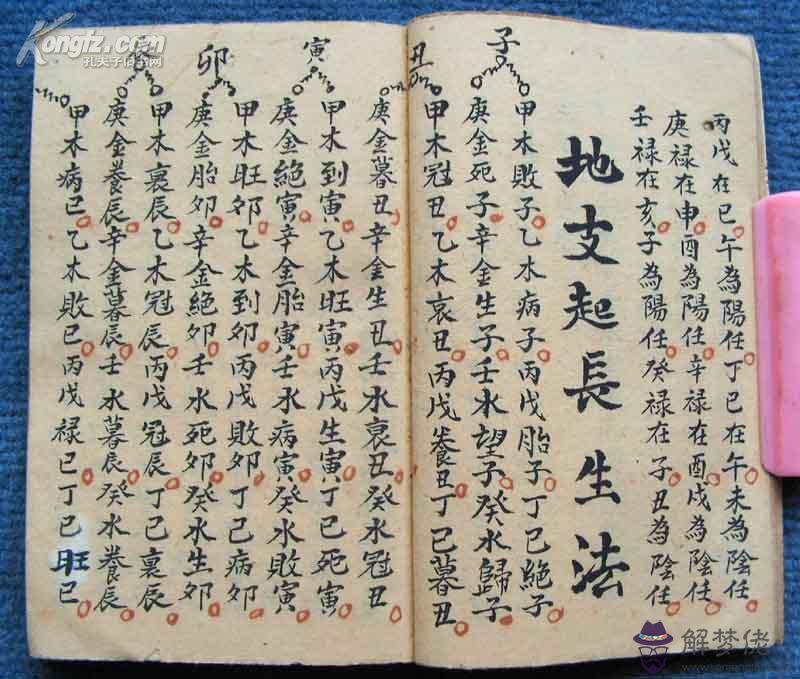 丙戊在巳午為陽任丁巳在午未為陰任
庚祿在申酉為陽任辛祿在酉戌為陰任
壬祿在亥子為陽任癸祿在子丑為陰任
地支起長生法
子
甲木敗子乙木病子丙戊胎子丁巳絕子
庚金死子辛金生子壬水望子癸水歸子
丑
甲木冠丑乙木衰丑丙戊養丑丁巳暮丑
庚金暮丑辛金生丑壬水衰丑癸水冠丑
寅
甲木到寅乙木旺寅丙戊生寅丁巳死寅
庚金絕寅辛金胎寅壬水病寅癸水敗寅
卯
甲木旺卯乙木到卯丙戊敗卯丁巳病卯
庚金胎卯辛金絕卯壬水死卯癸水生卯
甲木裏辰乙木冠辰丙戊冠辰丁巳裏辰
庚金養辰辛金暮辰壬水暮辰癸水養辰
甲木病巳乙木敗巳丙戊祿巳丁巳旺巳
Kongfz.com
孔夫子旧书网
解梦佬